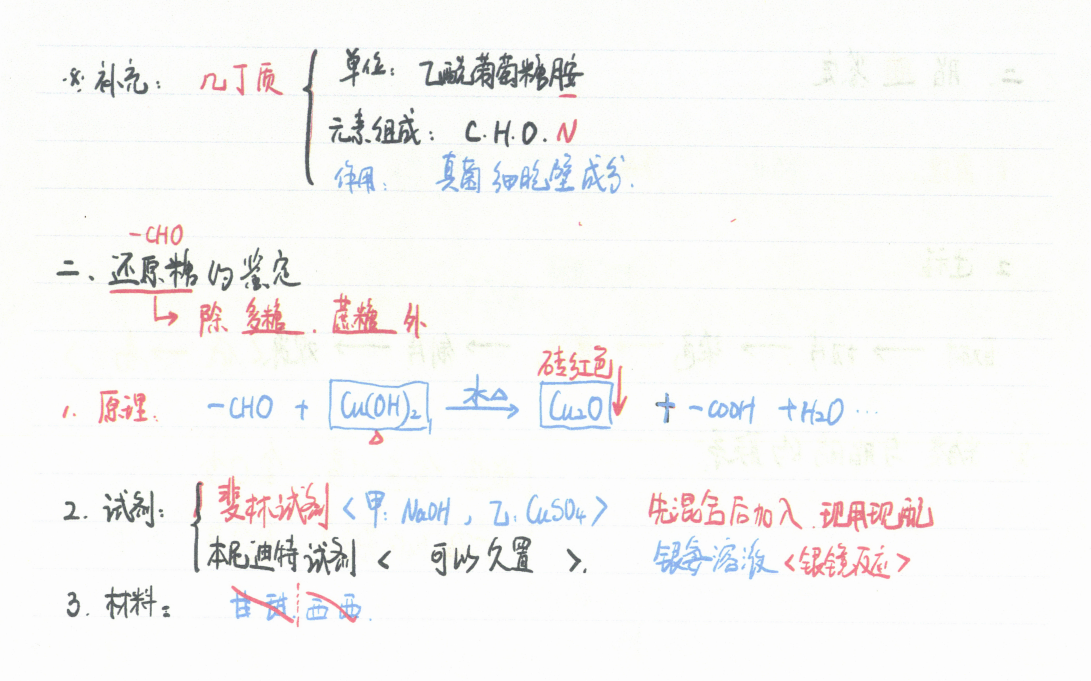 ※ 补充: 几丁质 { 单位: 乙酰葡萄糖胺
元素组成: C.H.O.N
作用: 真菌细胞壁成分.
-CHO
二、还原糖的鉴定
↳ 除多糖、蔗糖外
砖红色
1. 原理: -CHO + Cu(OH)₂ —水△→ Cu₂O↓ + -COOH + H₂O …
△
2. 试剂: { 斐林试剂 <甲: NaOH, 乙: CuSO₄> 先混合后加入.现用现配
本尼迪特试剂 < 可以久置 >. 银氨溶液 <银镜反应>
3. 材料: 甘甜 西西.